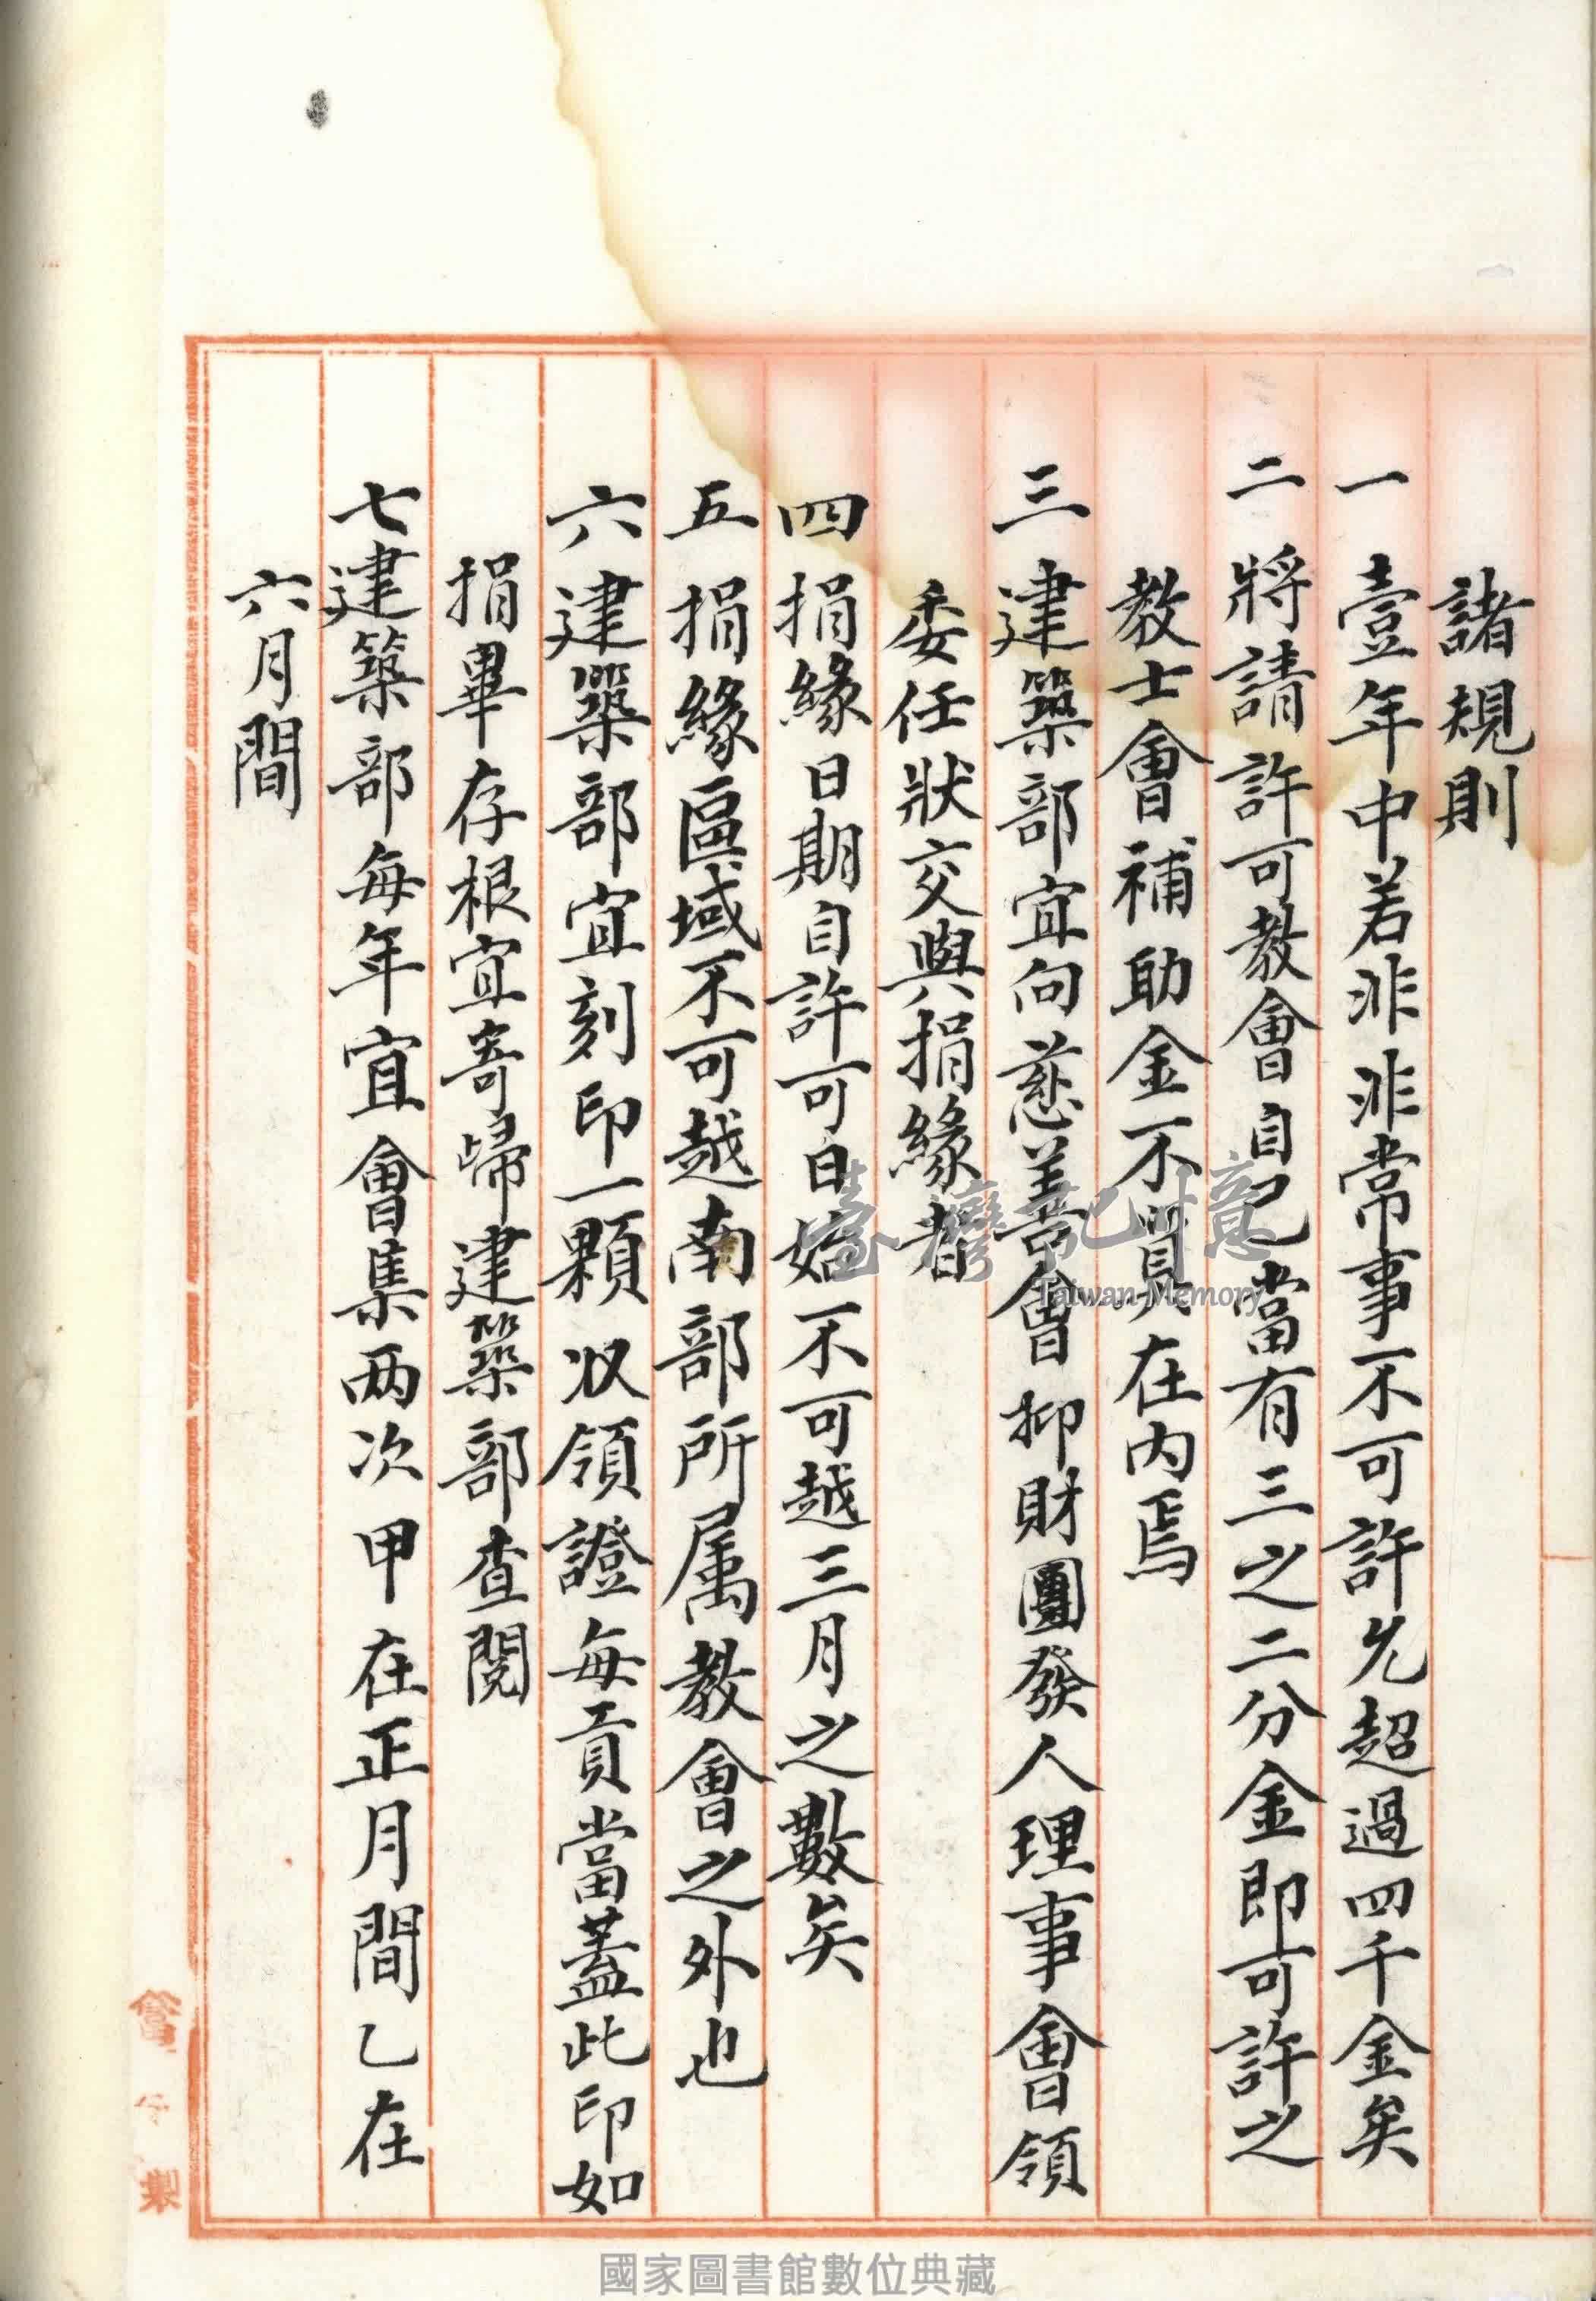 諸規則
一 壹年中若非非常事不可許允超過四千金矣
二 將請許可教會自己當有三之二分金即可許之
教士會補助金不算在内焉
三 建築部宜向慈善會抑財團發人理事會領
委任狀交與捐緣者
四 捐緣日期自許可日始不可越三月之數矣
五 捐緣區域不可越南部所属教會之外也
六 建築部宜刻印一顆収領證每頁當蓋此印如
捐畢存根宜寄歸建築部查閱
七 建築部每年宜會集两次甲在正月間乙在
六月間
臺灣記憶
Taiwan Memory
國家圖書館數位典藏
製